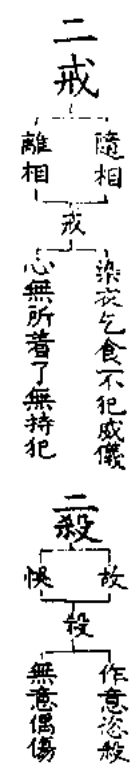 二戒
隨相
離相
戒
染衣乞食不犯威儀
心無所着了無持犯
二殺
故
悞
殺
作意恣殺
無意偶傷